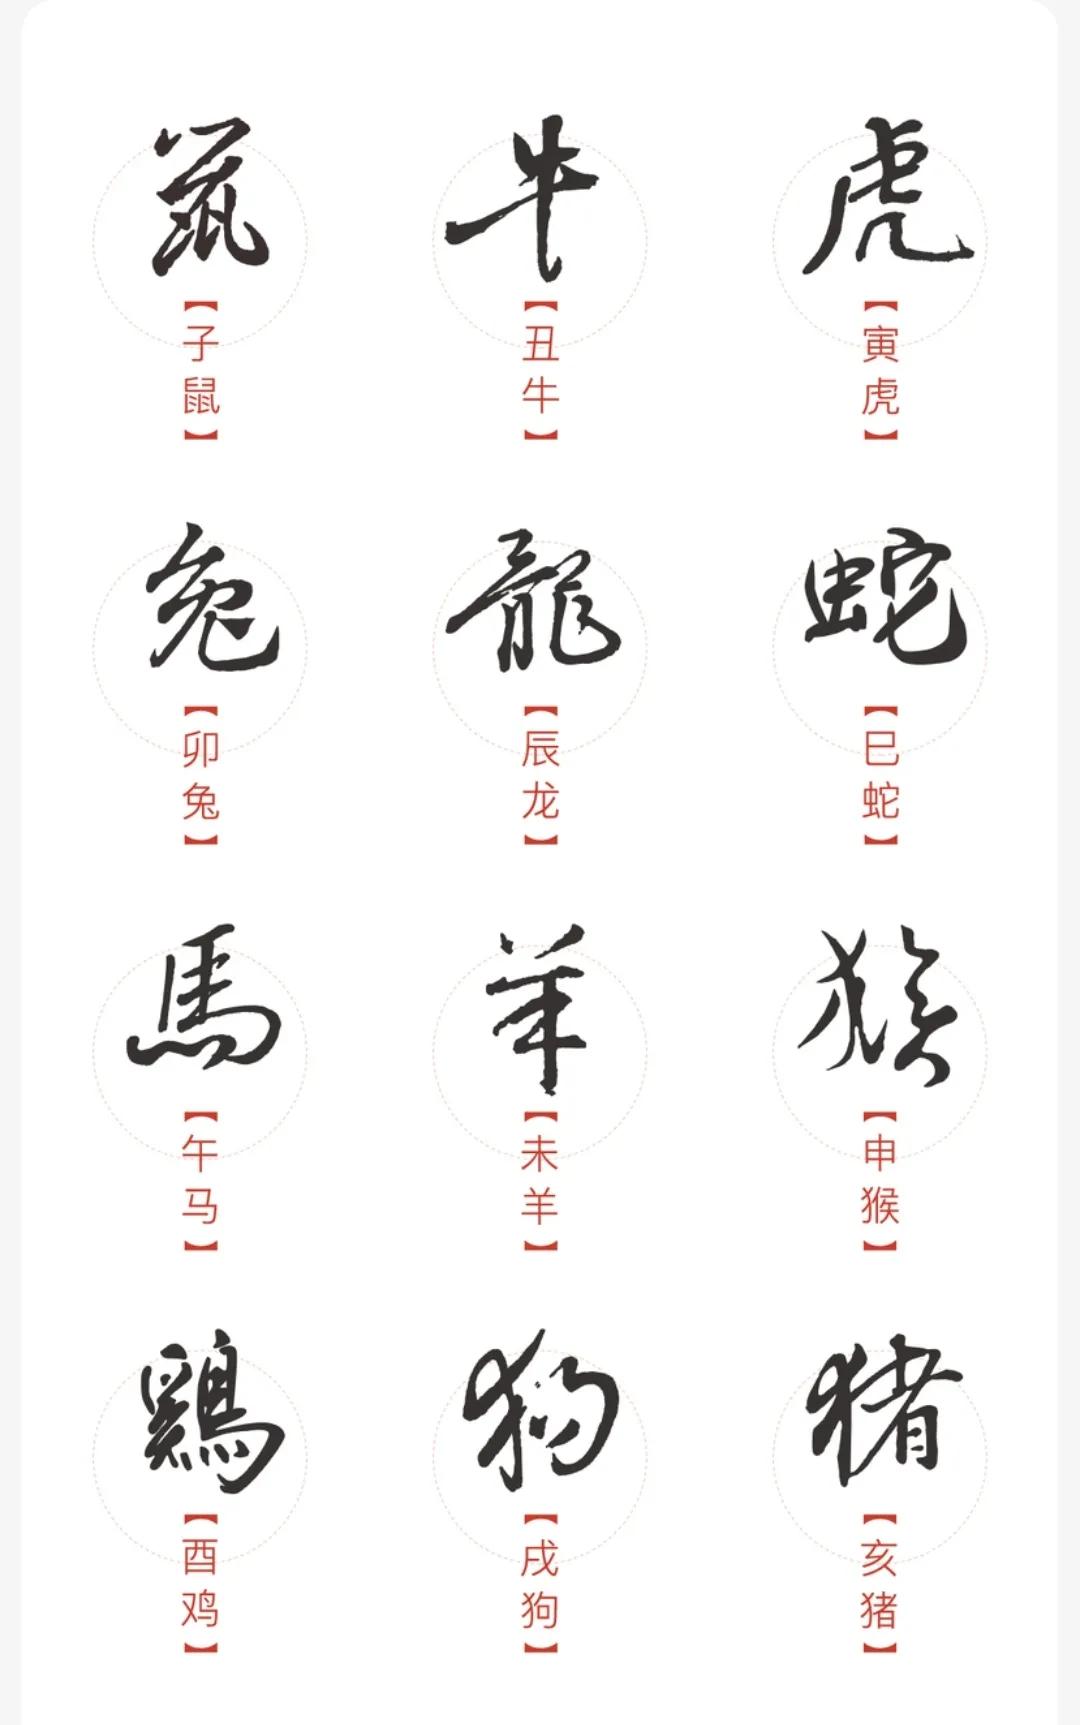 鼠 牛 虎
【子鼠】 【丑牛】 【寅虎】
兔 龍 蛇
【卯兔】 【辰龙】 【巳蛇】
馬 羊 猴
【午马】 【未羊】 【申猴】
鷄 狗 猪
【酉鸡】 【戌狗】 【亥猪】